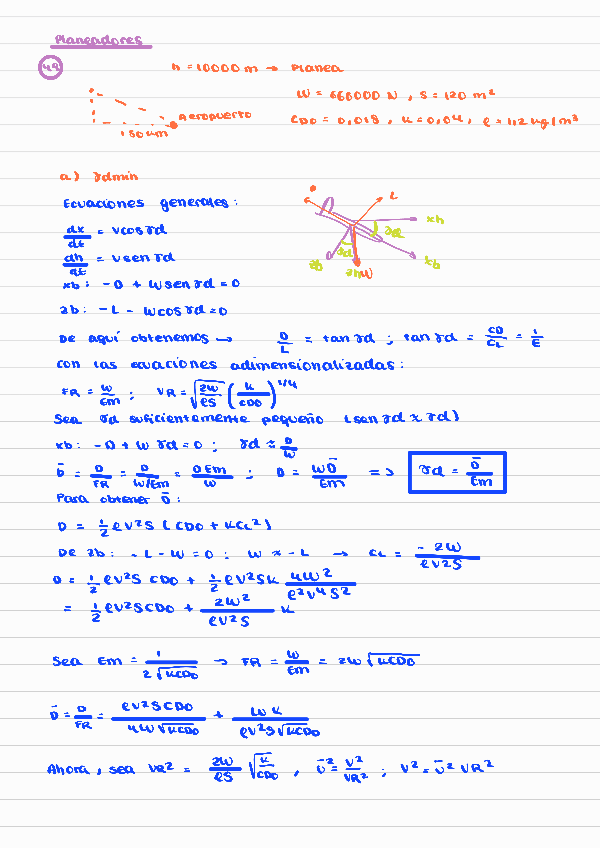 Planeadores
49
h = 10000 m → Planea
W = 660000 N , S = 120 m²
Aeropuerto
CD0 = 0,018 , K = 0,04 , ρ = 1,2 kg/m³
150 km
a) γdmin
Ecuaciones generales:
D
L
xh
γd
γd
zb
zh
W
xb
dx/dt = V cos γd
dh/dt = V sen γd
xb: -D + W sen γd = 0
zb: -L - W cos γd = 0
De aquí obtenemos → D/L = tan γd ; tan γd = CD/CL = 1/E
Con las ecuaciones adimensionalizadas:
FR = W/Em ; VR = √(2W/ρS) (K/CD0)^1/4
Sea γd suficientemente pequeño (sen γd ≈ γd)
xb: -D + W γd = 0 ; γd ≈ D/W
D̄ = D/FR = D/(W/Em) = D Em/W ; D = W D̄/Em => γd = D̄/Em
Para obtener D̄:
D = 1/2 ρV²S (CD0 + KCL²)
De zb: -L - W = 0 ; W ≈ -L → CL = -2W/ρV²S
D = 1/2 ρV²S CD0 + 1/2 ρV²SK 4W²/ρ²V⁴S²
= 1/2 ρV²SCD0 + 2W²/ρV²S K
Sea Em = 1/2√KCD0 → FR = W/Em = 2W √KCD0
D̄ = D/FR = ρV²SCD0/4W√KCD0 + WK/ρV²S√KCD0
Ahora, sea VR² = 2W/ρS √K/CD0 , ū² = V²/VR² ; V² = ū² VR²